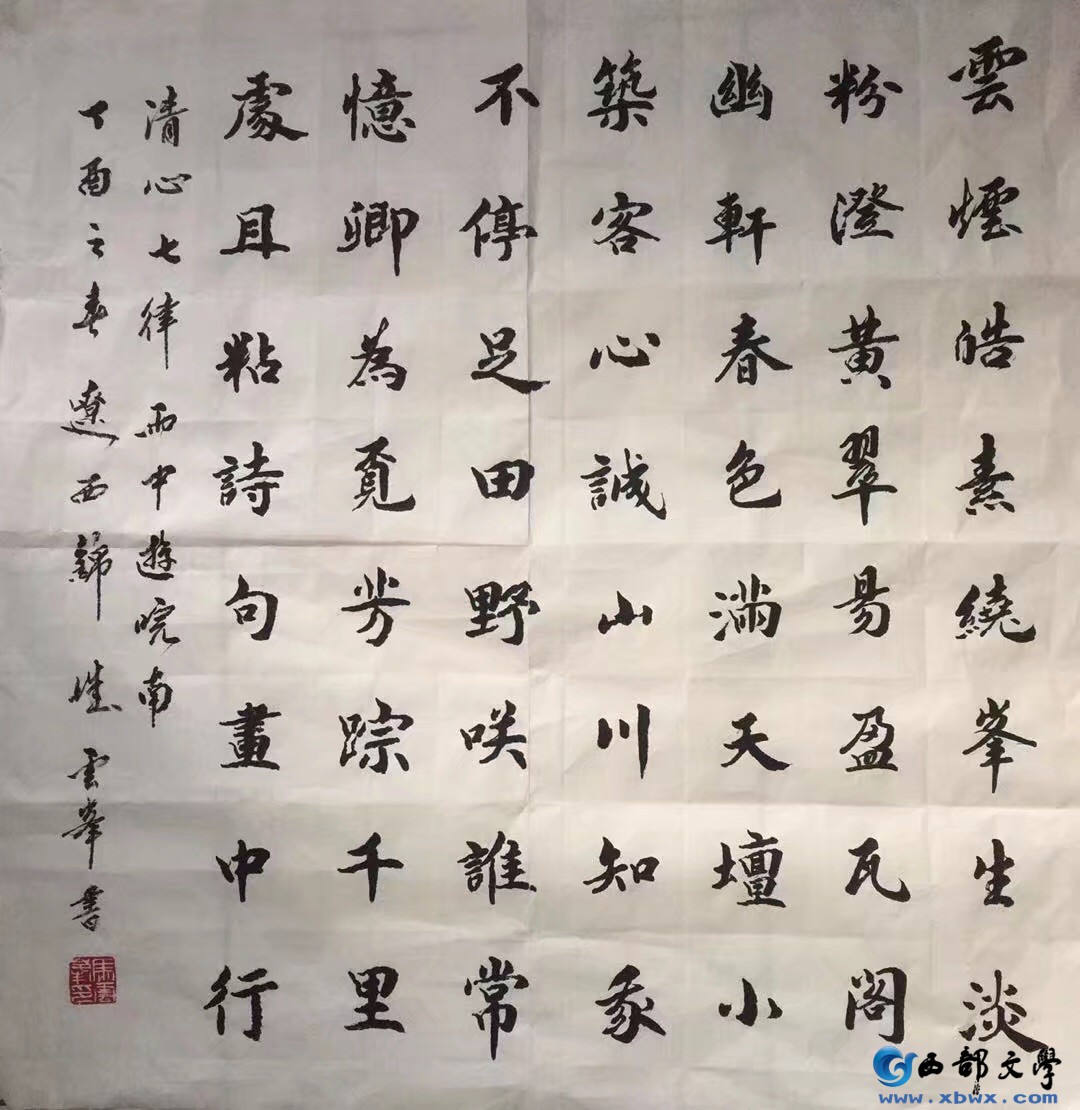 雲煙皓素繞峯生淡
粉澄黃翠易盈瓦閣
幽軒春色滿天壇小
築客心誠山川知我
不停足田野咲誰常
憶卿為覓芳踪千里
處且粘詩句畫中行
清心七律雨中遊皖南
丁酉之春遼西錦城雲峯書
西部文学
www.xbwx.com